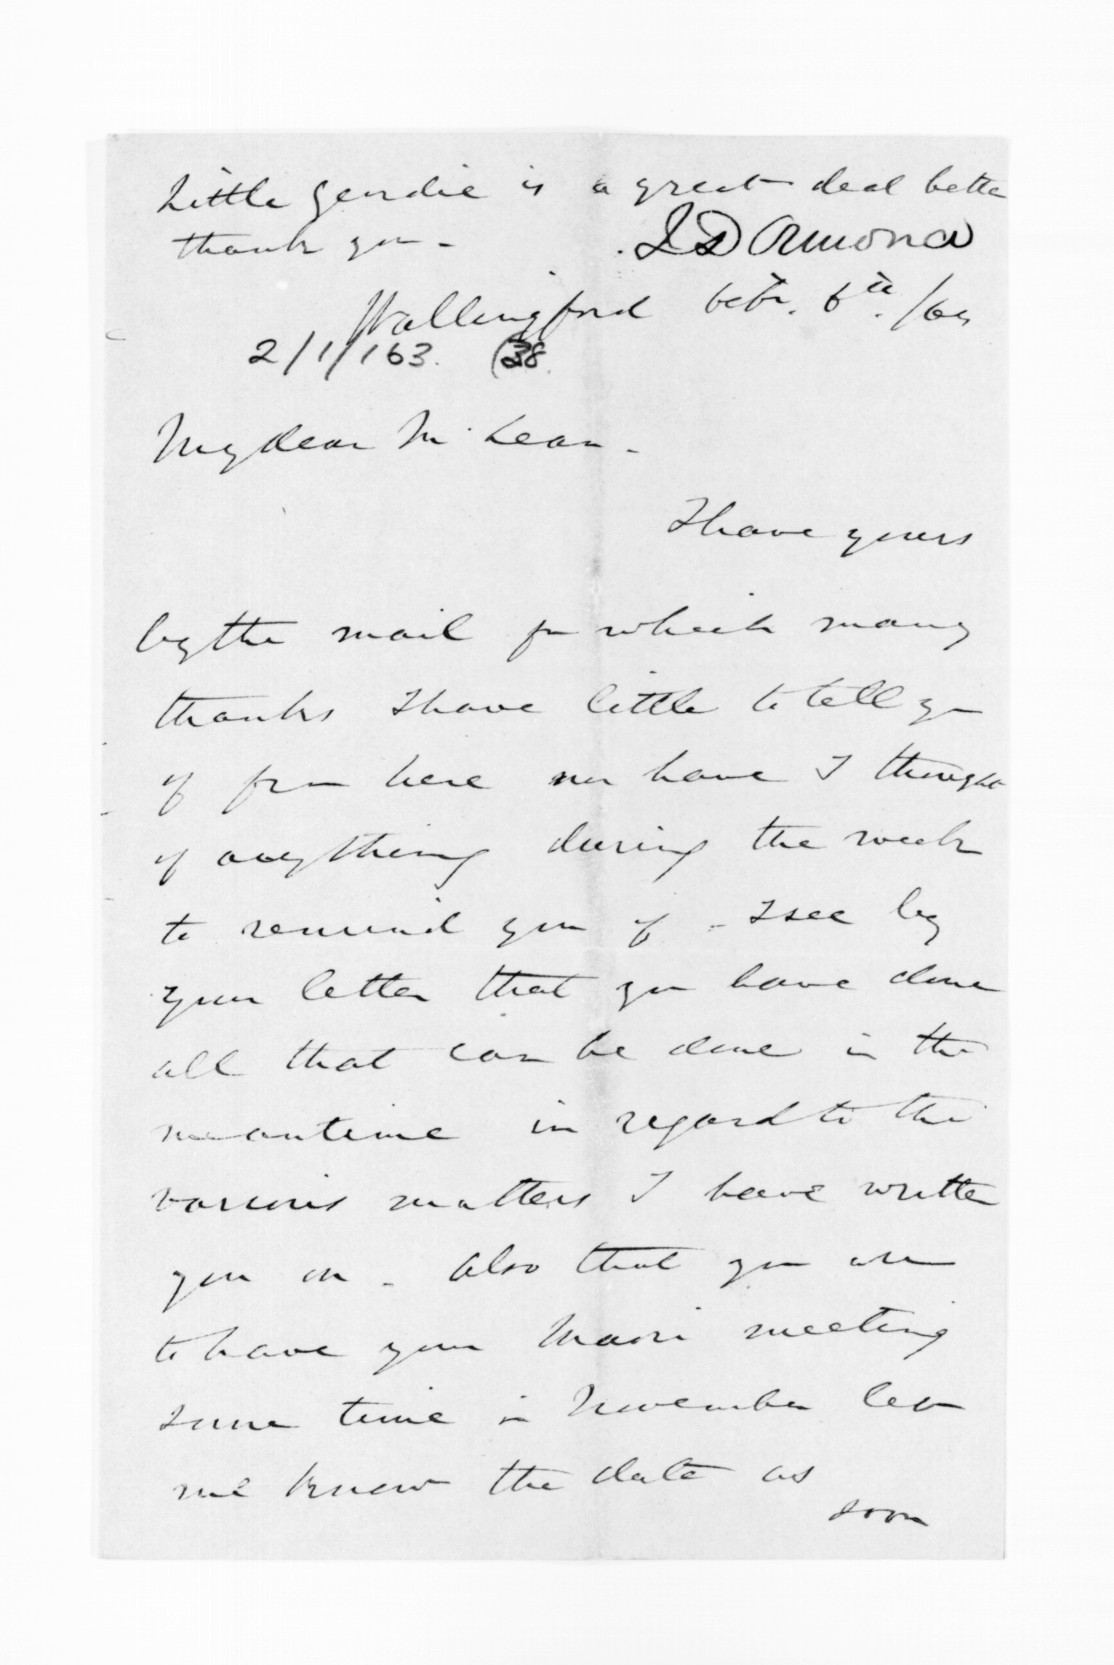 Little Geordie is a great deal better
thank you -
J D Ormond
Wallingford Octr. 6th. /69
2/1/163. (38.
My dear McLean -
I have yours
by the mail for which many
thanks I have little to tell you
of from here nor have I thought
of anything during the week
to remind you of - I see by
your letter that you have done
all that can be done in the
meantime in regard to the
various matters I have written
you on - Also that you are
to have your Maori meeting
some time in November let
me know the date as
soon